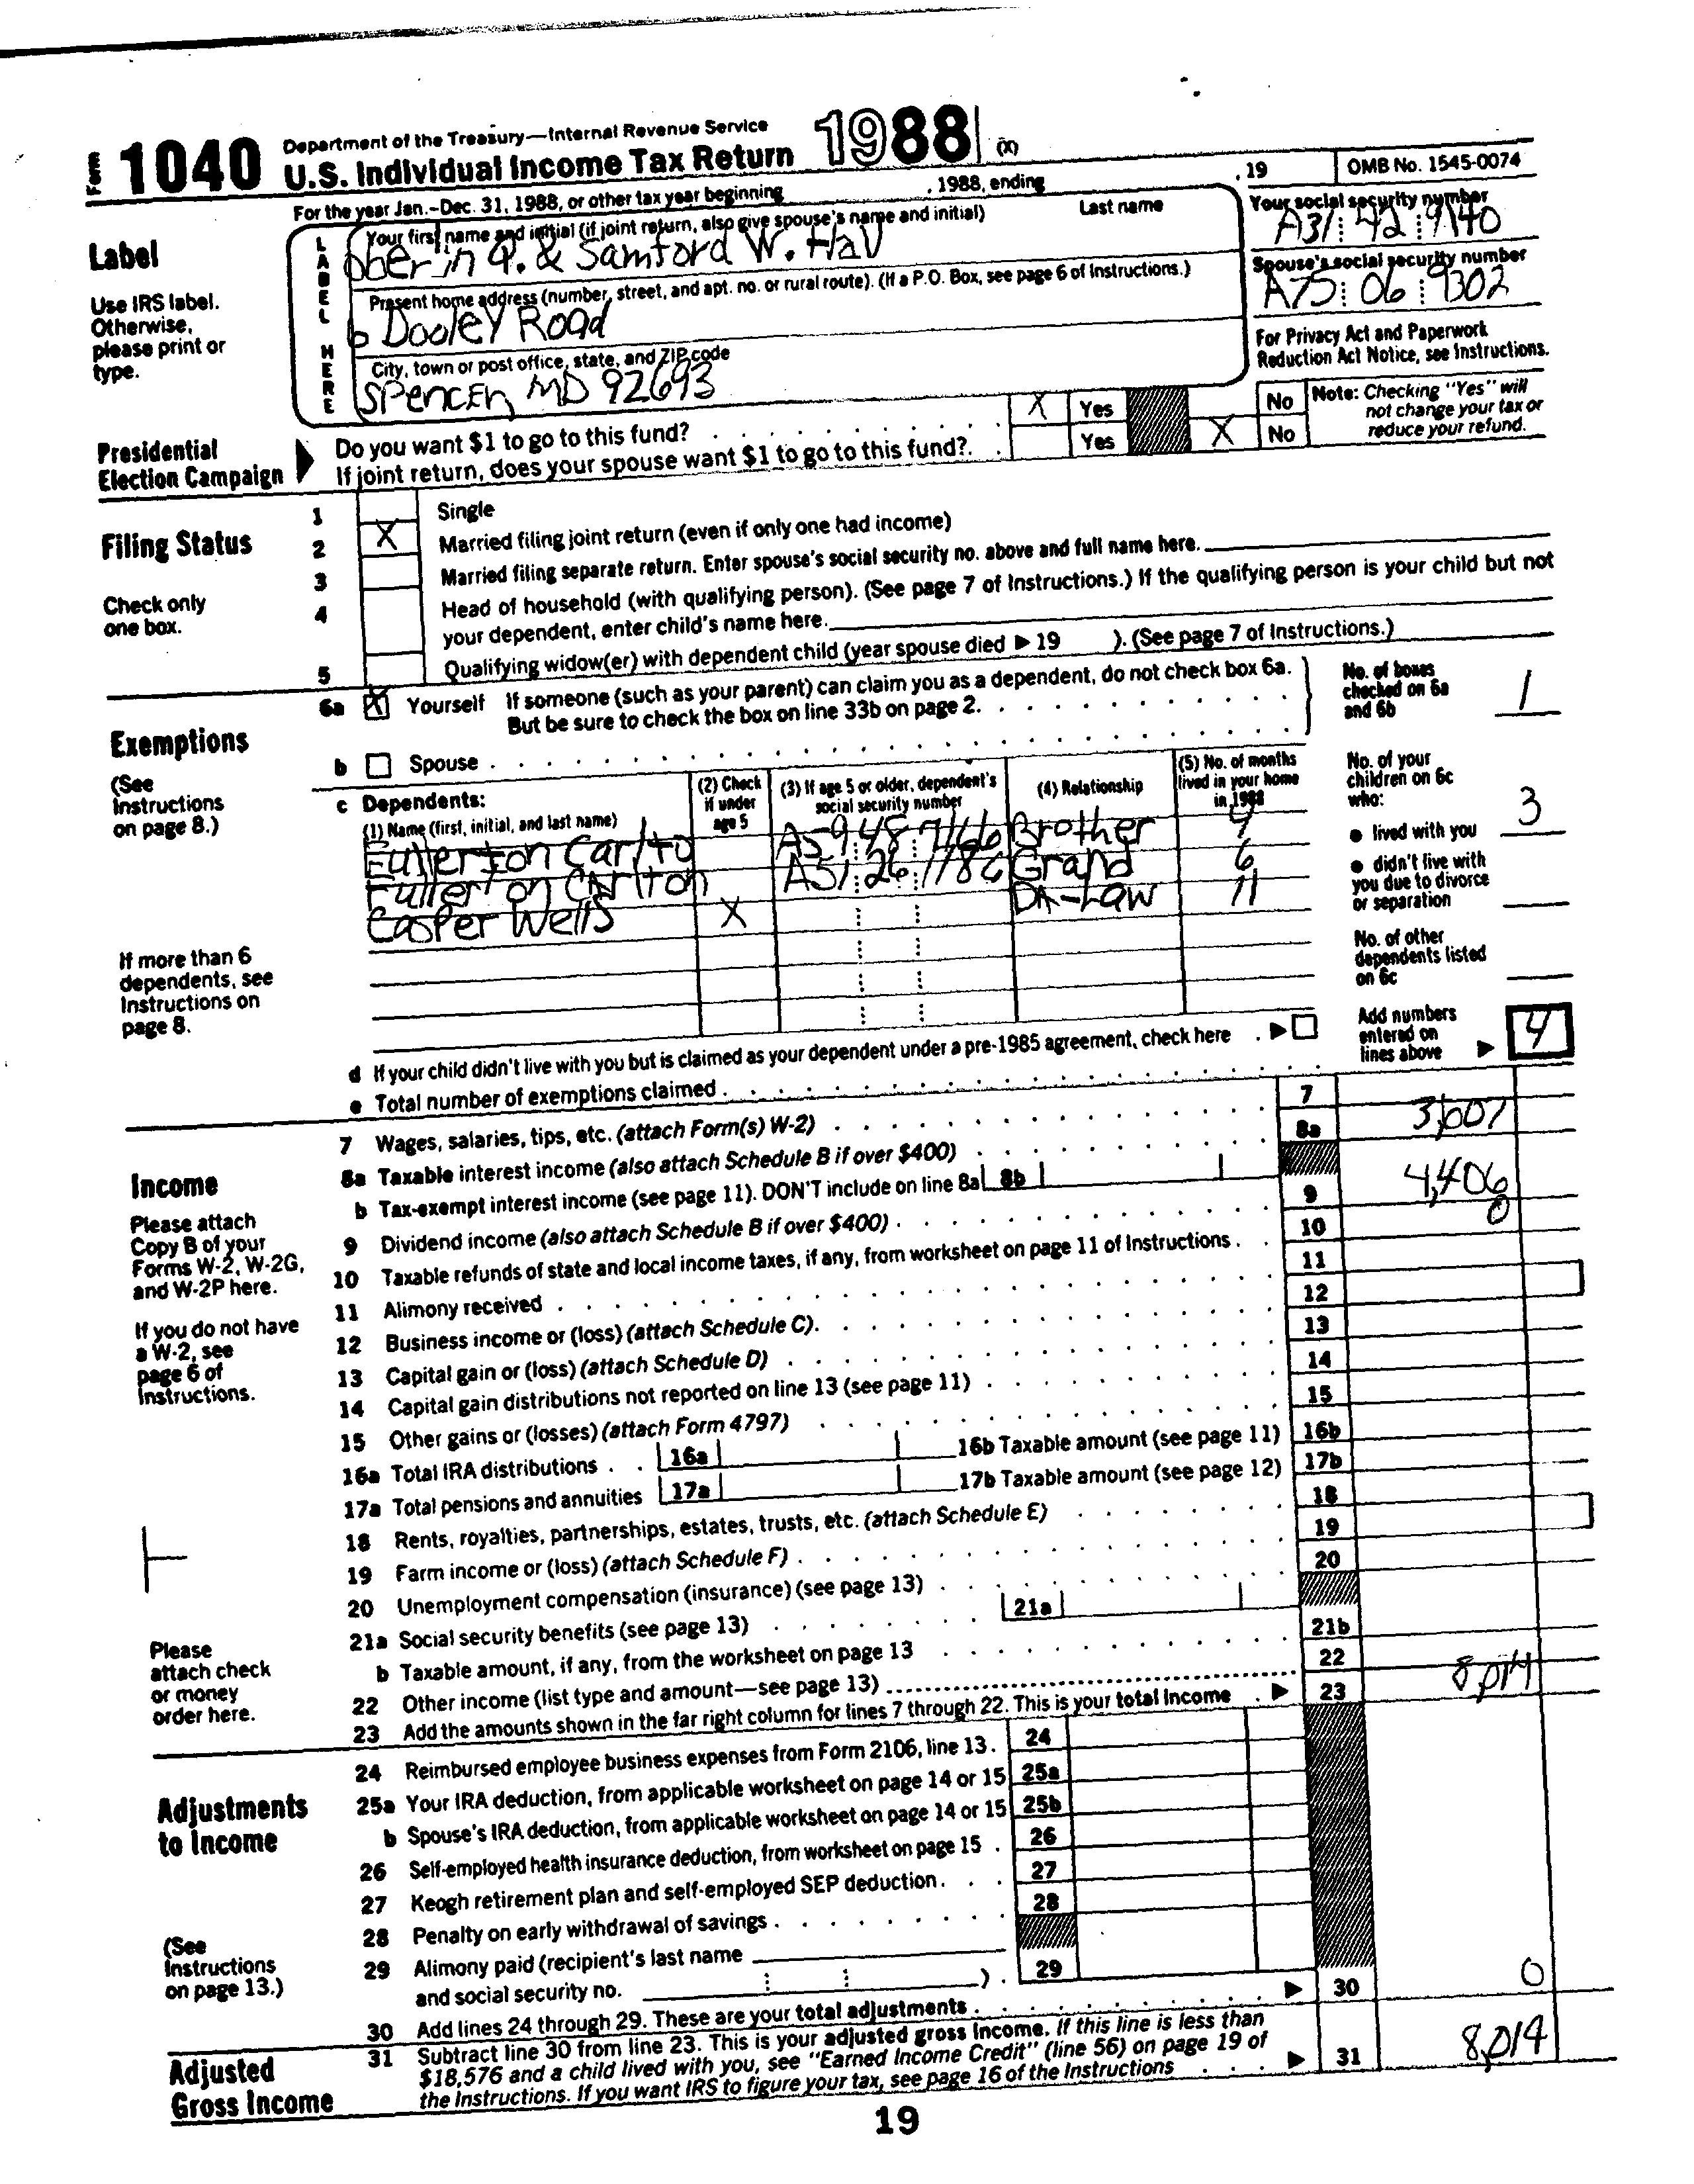 Form 1040 Department of the Treasury—Internal Revenue Service
U.S. Individual Income Tax Return 1988 (X)
For the year Jan.–Dec. 31, 1988, or other tax year beginning , 1988, ending , 19 OMB No. 1545-0074
Label
Use IRS label.
Otherwise,
please print or
type.
LABEL HERE
Your first name and initial (if joint return, also give spouse's name and initial) Last name
ober in Q. & Samford W. Hal
Your social security number
A31 42 9140
Present home address (number, street, and apt. no. or rural route). (If a P.O. Box, see page 6 of Instructions.)
6 Dooley Road
Spouse's social security number
A75 06 9302
City, town or post office, state, and ZIP code
Spencer, MD 92693
For Privacy Act and Paperwork
Reduction Act Notice, see Instructions.
Presidential
Election Campaign
Do you want $1 to go to this fund? X Yes No
If joint return, does your spouse want $1 to go to this fund? Yes X No
Note: Checking "Yes" will
not change your tax or
reduce your refund.
Filing Status
Check only
one box.
1 Single
2 X Married filing joint return (even if only one had income)
3 Married filing separate return. Enter spouse's social security no. above and full name here.
4 Head of household (with qualifying person). (See page 7 of Instructions.) If the qualifying person is your child but not
your dependent, enter child's name here.
5 Qualifying widow(er) with dependent child (year spouse died ▶ 19 ). (See page 7 of Instructions.)
Exemptions
(See
Instructions
on page 8.)
6a X Yourself If someone (such as your parent) can claim you as a dependent, do not check box 6a.
But be sure to check the box on line 33b on page 2.
b Spouse
No. of boxes
checked on 6a
and 6b 1
c Dependents:
(1) Name (first, initial, and last name)
(2) Check
if under
age 5
(3) If age 5 or older, dependent's
social security number
(4) Relationship
(5) No. of months
lived in your home
in 1988
Fullerton Carlto A59 48 7166 Brother 4
Fullerton Carlton A51 26 1186 Grand 6
Casper Wells X DA-Law 11
No. of your
children on 6c
who:
● lived with you 3
● didn't live with
you due to divorce
or separation
No. of other
dependents listed
on 6c
If more than 6
dependents, see
Instructions on
page 8.
d If your child didn't live with you but is claimed as your dependent under a pre-1985 agreement, check here ▶
e Total number of exemptions claimed
Add numbers
entered on
lines above ▶ 4
Income
Please attach
Copy B of your
Forms W-2, W-2G,
and W-2P here.
If you do not have
a W-2, see
page 6 of
Instructions.
Please
attach check
or money
order here.
7 Wages, salaries, tips, etc. (attach Form(s) W-2) 7 3,607
8a Taxable interest income (also attach Schedule B if over $400) 8a
b Tax-exempt interest income (see page 11). DON'T include on line 8a 8b
9 Dividend income (also attach Schedule B if over $400) 9 4,406
10 Taxable refunds of state and local income taxes, if any, from worksheet on page 11 of Instructions 10 0
11 Alimony received 11
12 Business income or (loss) (attach Schedule C) 12
13 Capital gain or (loss) (attach Schedule D) 13
14 Capital gain distributions not reported on line 13 (see page 11) 14
15 Other gains or (losses) (attach Form 4797) 15
16a Total IRA distributions 16a 16b Taxable amount (see page 11) 16b
17a Total pensions and annuities 17a 17b Taxable amount (see page 12) 17b
18 Rents, royalties, partnerships, estates, trusts, etc. (attach Schedule E) 18
19 Farm income or (loss) (attach Schedule F) 19
20 Unemployment compensation (insurance) (see page 13) 20
21a Social security benefits (see page 13) 21a
b Taxable amount, if any, from the worksheet on page 13 21b
22 Other income (list type and amount—see page 13) 22
23 Add the amounts shown in the far right column for lines 7 through 22. This is your total income ▶ 23 8,014
Adjustments
to Income
(See
Instructions
on page 13.)
24 Reimbursed employee business expenses from Form 2106, line 13. 24
25a Your IRA deduction, from applicable worksheet on page 14 or 15 25a
b Spouse's IRA deduction, from applicable worksheet on page 14 or 15 25b
26 Self-employed health insurance deduction, from worksheet on page 15 26
27 Keogh retirement plan and self-employed SEP deduction 27
28 Penalty on early withdrawal of savings 28
29 Alimony paid (recipient's last name
and social security no. ) 29
30 Add lines 24 through 29. These are your total adjustments ▶ 30 0
Adjusted
Gross Income
31 Subtract line 30 from line 23. This is your adjusted gross income. If this line is less than
$18,576 and a child lived with you, see "Earned Income Credit" (line 56) on page 19 of
the Instructions. If you want IRS to figure your tax, see page 16 of the Instructions ▶ 31 8,014
19